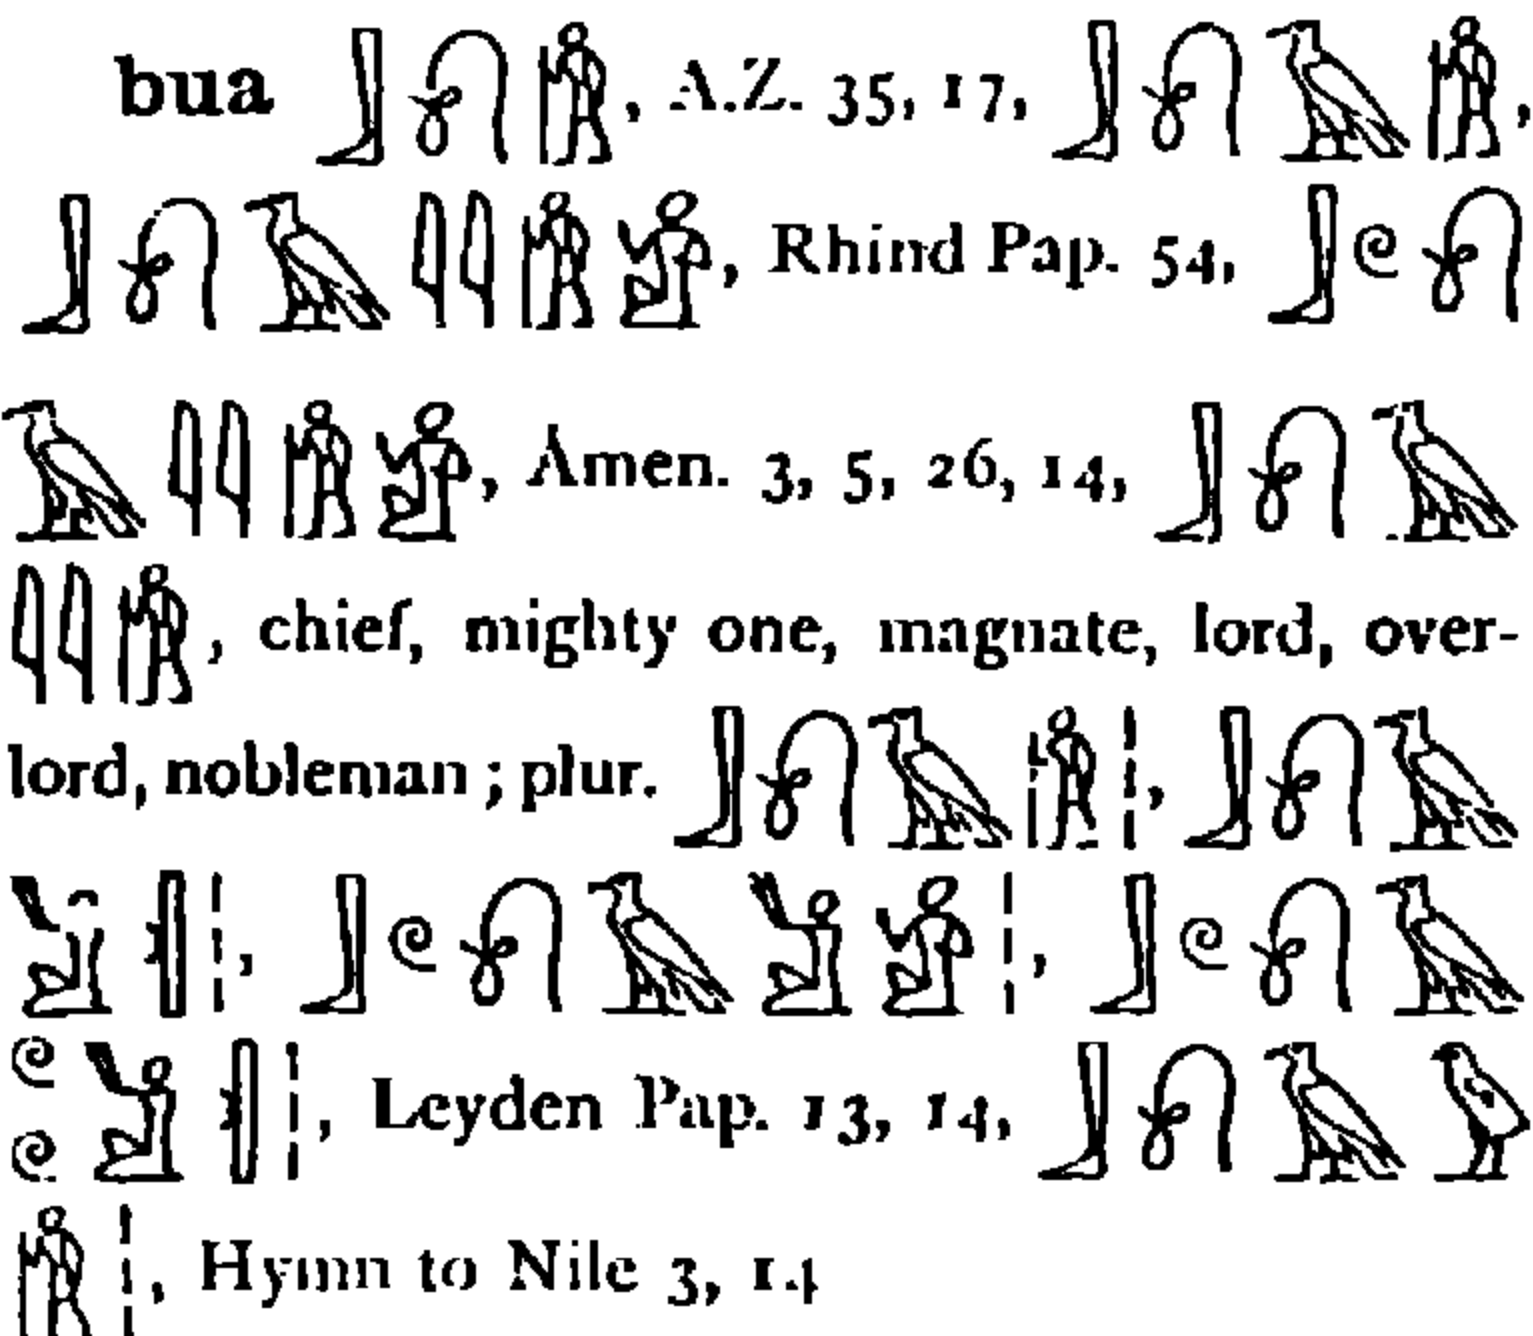 bua 𓃀𓍯𓀙, A.Z. 35, 17, 𓃀𓍯𓄿𓀙,
𓃀𓍯𓄿𓇋𓇋𓀙𓀀, Rhind Pap. 54, 𓃀𓏲𓍯
𓄿𓇋𓇋𓀙𓀀, Amen. 3, 5, 26, 14, 𓃀𓍯𓄿
𓇋𓇋𓀙, chief, mighty one, magnate, lord, over-
lord, nobleman ; plur. 𓃀𓍯𓄿𓀙𓏦, 𓃀𓍯𓄿
𓀃𓏛𓏦, 𓃀𓏲𓍯𓄿𓀃𓀀𓏦, 𓃀𓏲𓍯𓄿
𓏲𓏲𓀃𓏛𓏦, Leyden Pap. 13, 14, 𓃀𓍯𓄿𓅱
𓀙𓏦, Hymn to Nile 3, 14